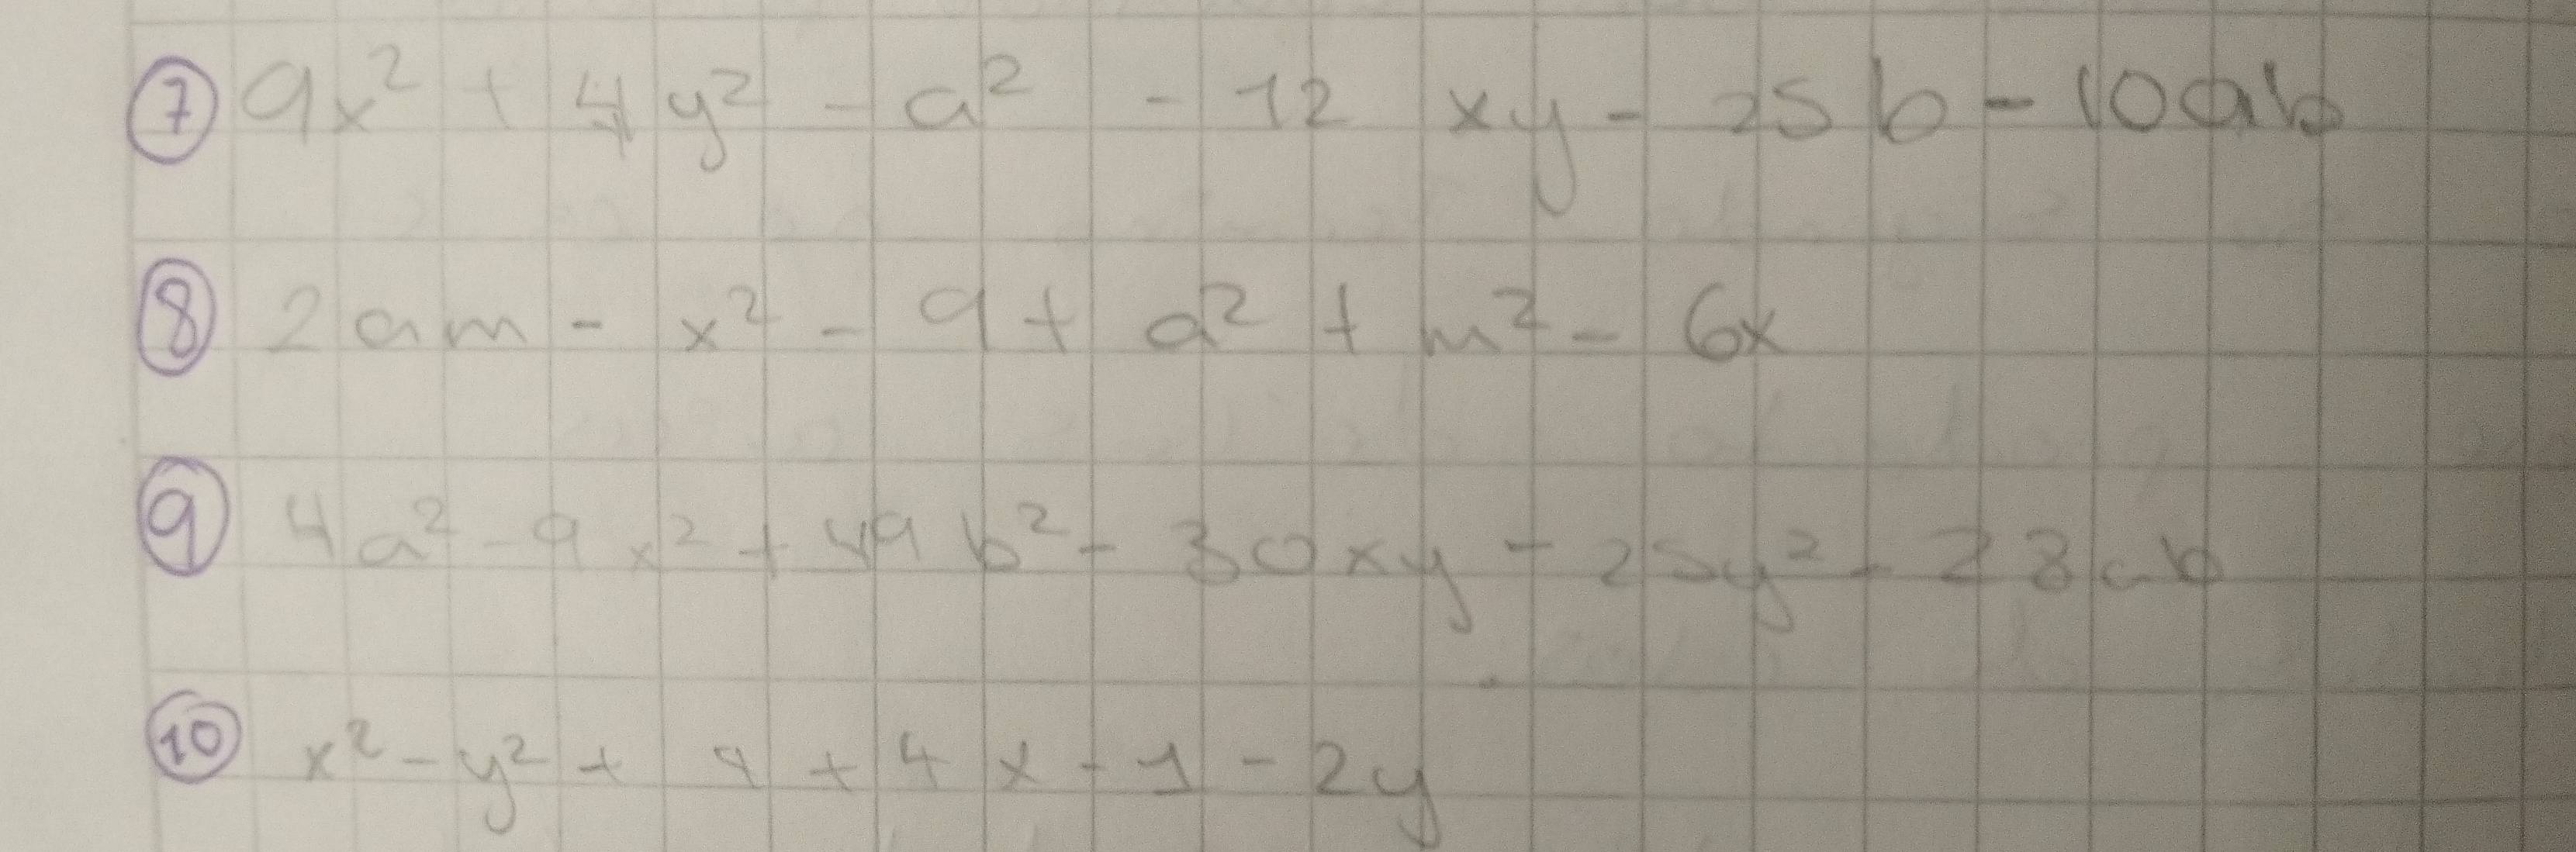 ⑦ 9x² + 4y² - a² - 12 xy - 25b - 10ab
⑧ 2am - x² - 9 + a² + m² - 6x
⑨ 4a² - 9x² + 49b² - 30xy - 25y² - 28ab
⑩ x² - y² + 4 + 4x - 1 - 2y